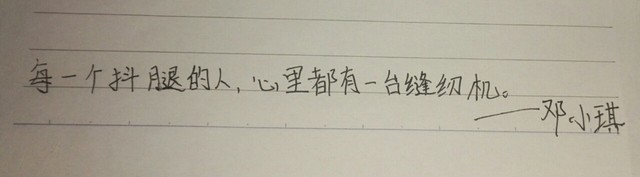 每一个抖腿的人,心里都有一台缝纫机。
——邓小琪